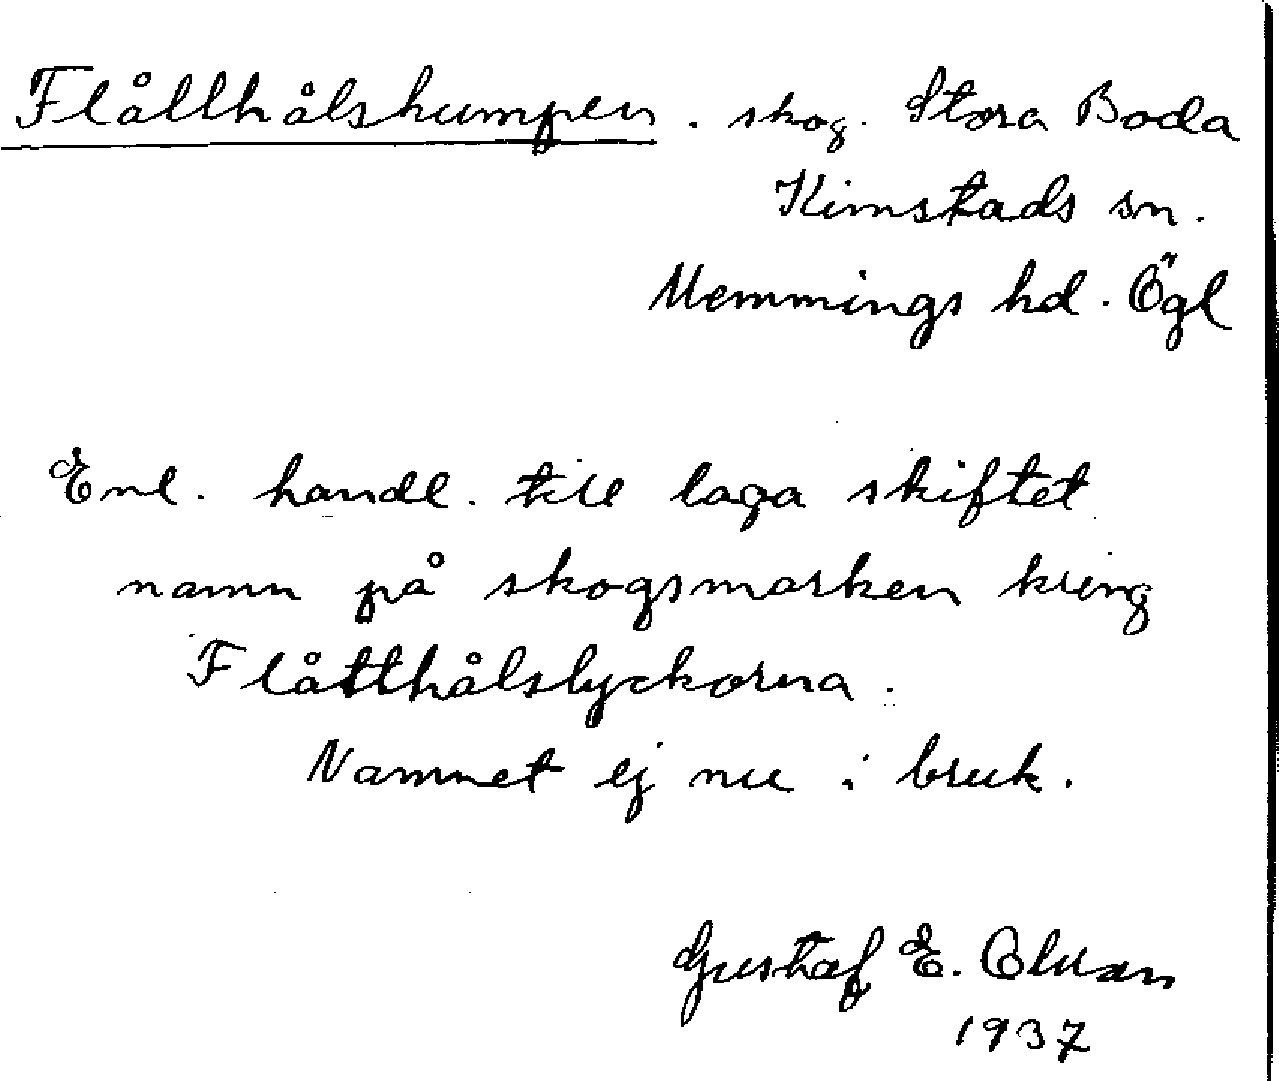 Flåtthålshumpen. skog. Stora Boda
Kimstads sn.
Memmings hd. Ögl
Enl. handl. till laga skiftet
namn på skogsmarken kring
Flåtthålslyckorna.
Namnet ej nu i bruk.
Gustaf E. Olsson
1937